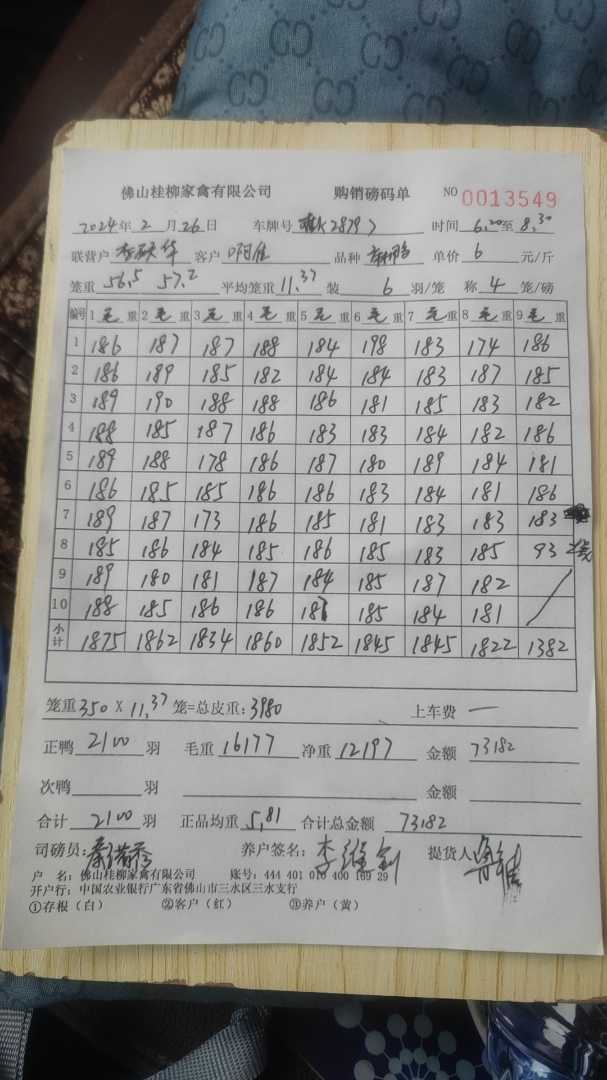 佛山桂柳家禽有限公司 购销磅码单 NO 0013549
2024年2月26日 车牌号 28797 时间 6,20至8,30
联营户 华 客户 啊佳 品种 单价 6 元/斤
笼重 56,5 57,2 平均笼重 11,37 装 6 羽/笼 称 4 笼/磅
编号 1 毛 重 2 毛 重 3 毛 重 4 毛 重 5 毛 重 6 毛 重 7 毛 重 8 毛 重 9 毛 重
1 186 187 187 188 184 198 183 174 186
2 186 189 185 182 184 184 183 187 185
3 189 190 188 188 186 181 185 183 182
4 188 185 187 186 183 183 184 182 186
5 189 188 178 186 187 180 189 184 181
6 186 185 185 186 186 183 184 181 186
7 189 187 173 186 185 181 183 183 183
8 185 186 184 185 186 185 183 185 93 2笼
9 189 180 181 187 184 185 187 182
10 188 185 186 186 187 185 184 181
小计 1875 1862 1834 1860 1852 1845 1845 1822 1382
笼重 350 X 11,37 笼=总皮重: 3980 上车费 一
正鸭 2100 羽 毛重 16177 净重 12197 金额 73182
次鸭 羽 金额
合计 2100 羽 正品均重 5,81 合计总金额 73182
司磅员: 养户签名: 李 提货人
户 名: 佛山桂柳家禽有限公司 账号: 444 401 010 400 169 29
开户行: 中国农业银行广东省佛山市三水区三水支行
①存根（白） ②客户（红） ③养户（黄）